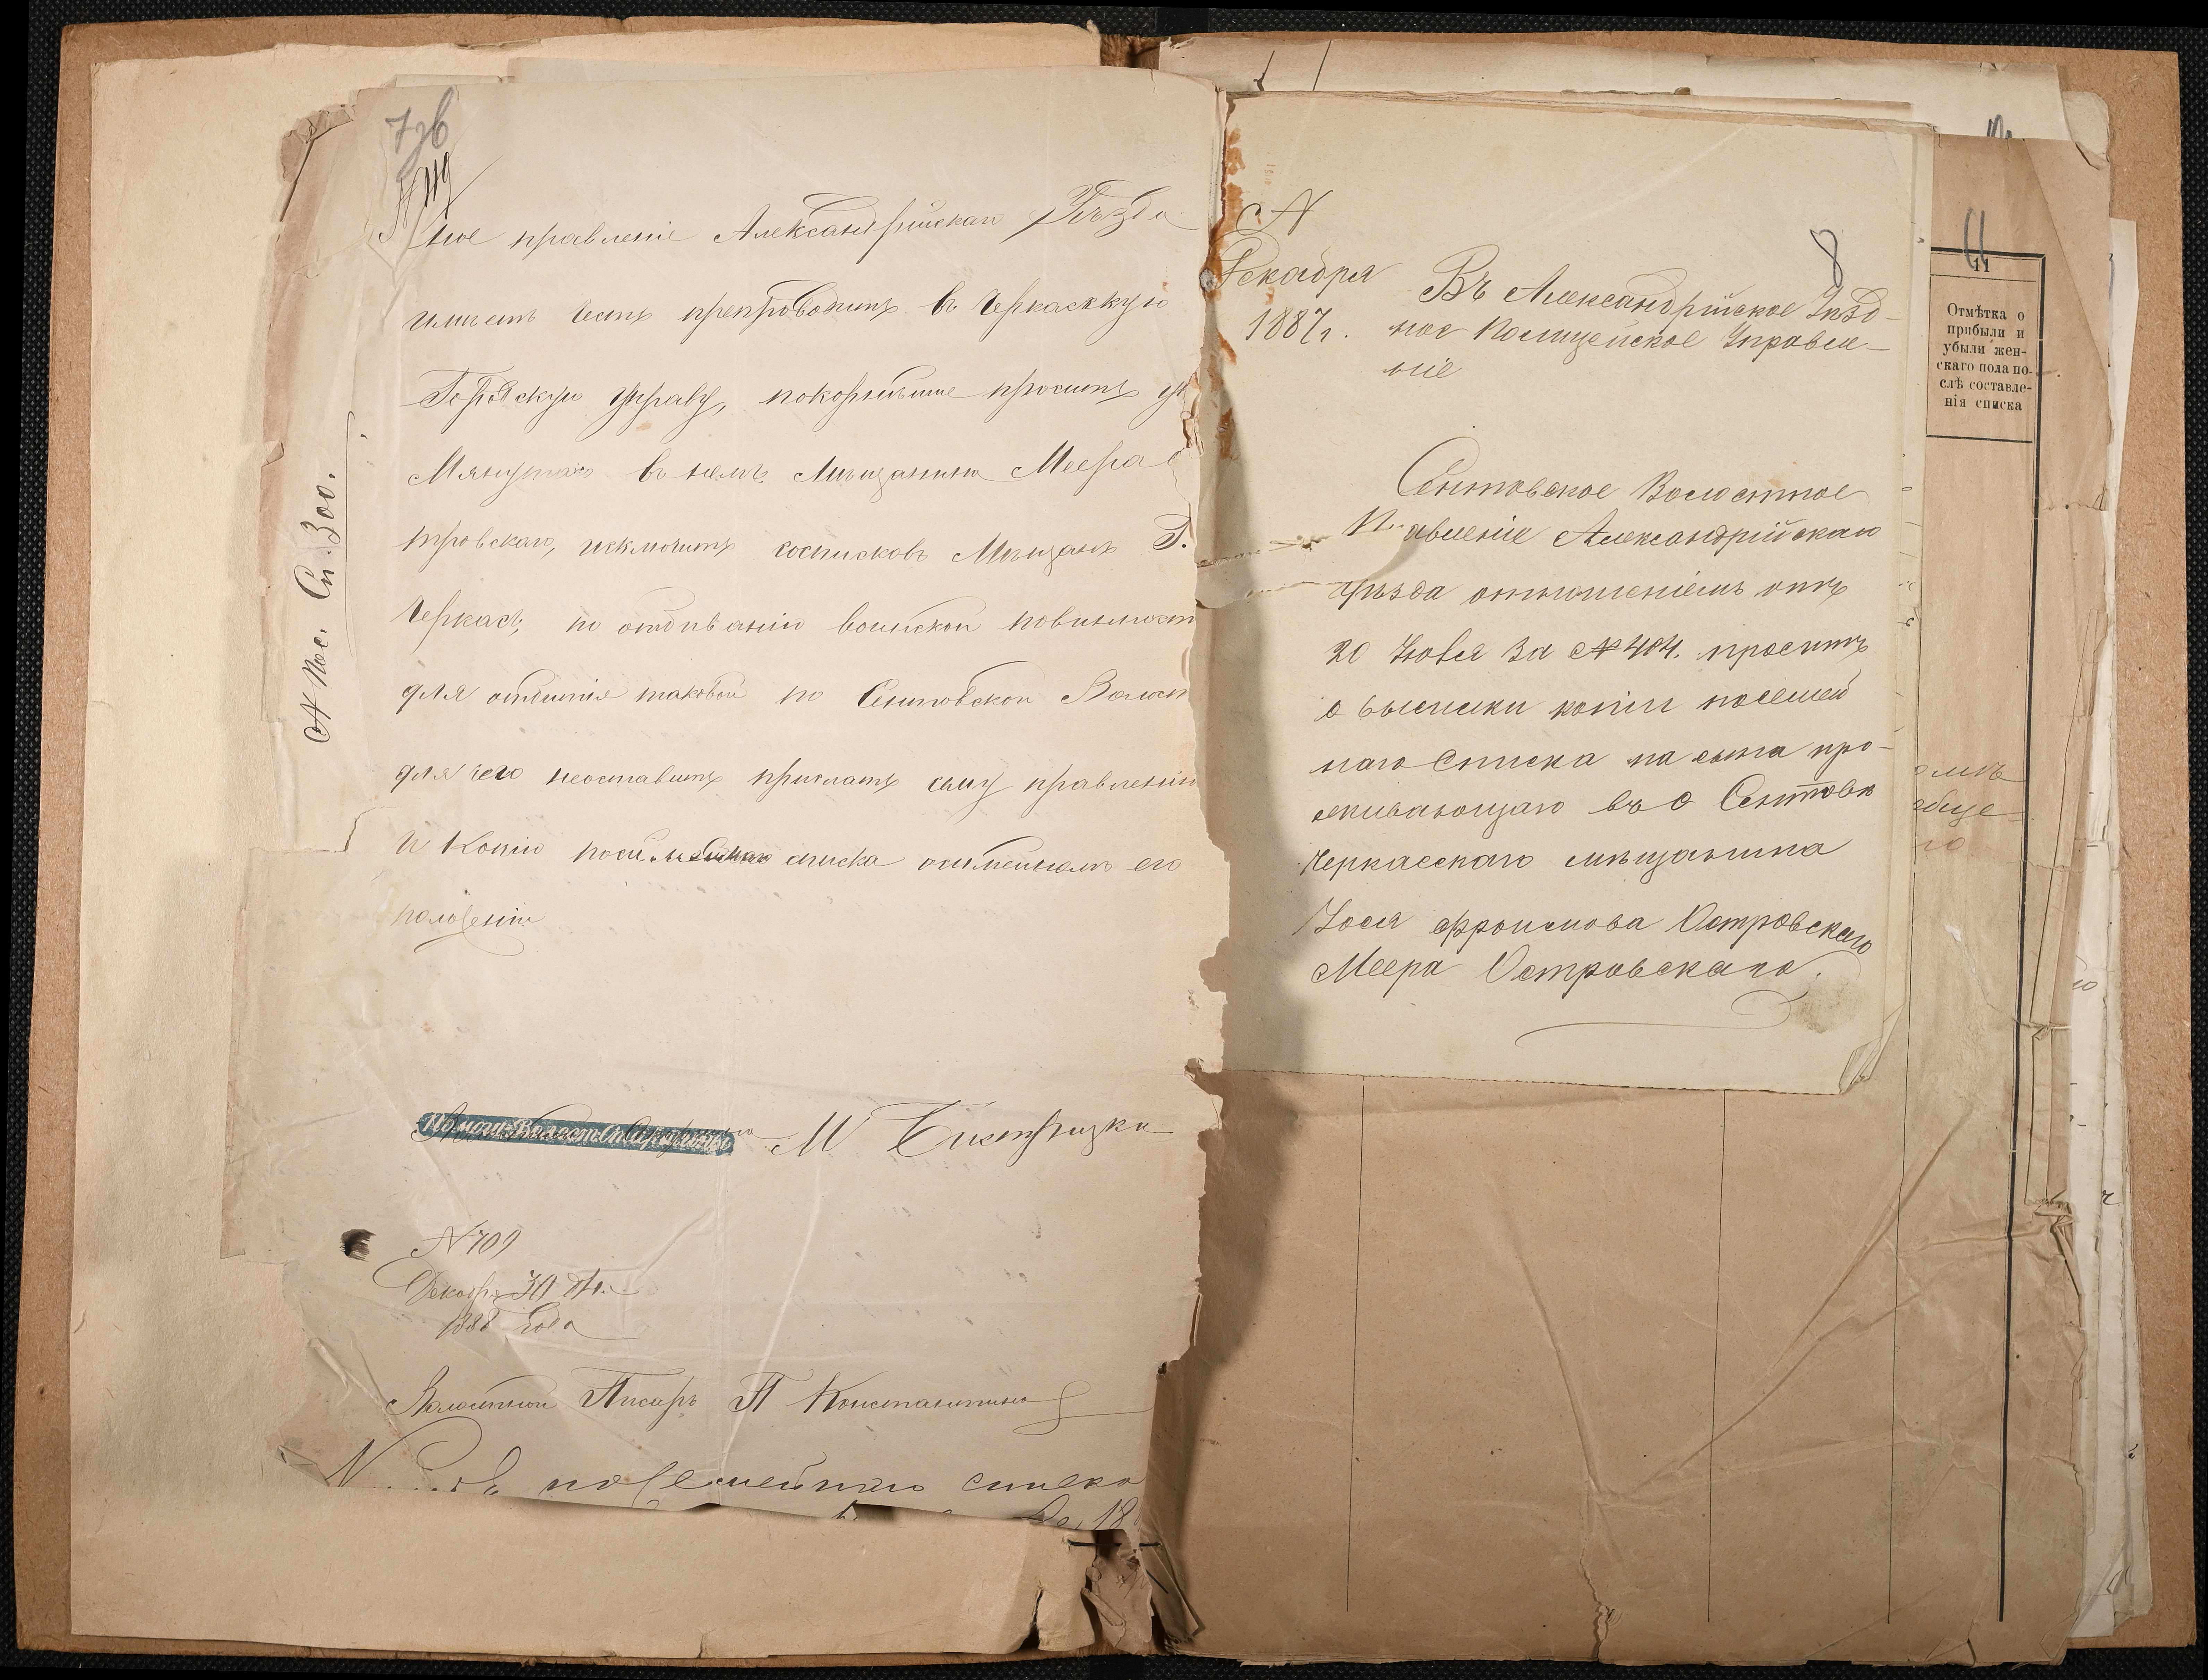 7об
ное правленіе Александрійскаго Уѣзда
имѣетъ честь препроводить въ Черкасскую
Городскую управу, покорнѣйше просить
въ немъ Мѣщанина Меера
тровскаго, исключить сосписковъ Мѣщанъ Г.
Черкасъ, по отбыванію воинской повинност
для отбытія таковой по Сентовской Волост
для чего неоставить прислать сему правленію
и Копію списка его
№ Пос. Сп. 300.
Помощ. Волост. Старшины М
№ 709
Декабр 30 дн.
1888 Года
Волостной Писарь П Константинов
посемейнаго списка
18
№
Декабря
1887 г.
8
Въ Александрійское Уѣзд-
ное Полицейское Управле-
ніе
Сентовское Волостное
П авленіе Александрійскаго
уѣзда отношеніемъ отъ
20 за № 404. проситъ
о высылки копіи посемей
наго Списка на сына про-
живающаго въ с Сентовк
Черкасскаго мѣщанина
Іося Фроимова Островскаго
Меера Островскаго.
11
11
Отмѣтка о
прибыли и
убыли жен-
скаго пола по-
слѣ составле-
нія списка